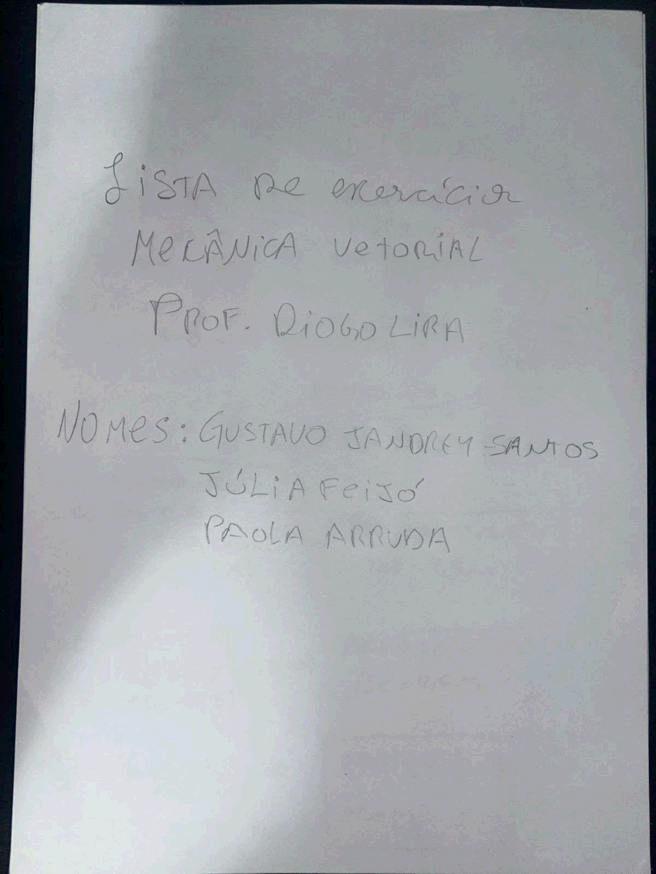 LiSTA De exercícios
MECÂNiCA VeTORiAL
PROF. DiOGO LiRA
NOMeS: GUSTAVO JANDREY SANTOS
JÚLiA FeiJÓ
PAOLA ARRUDA